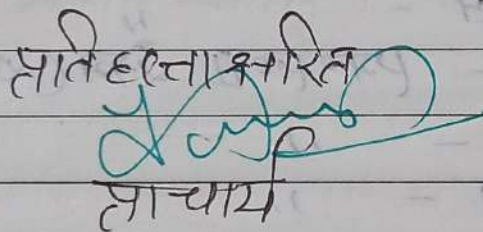 प्रतिहस्ताक्षरित
प्राचार्य